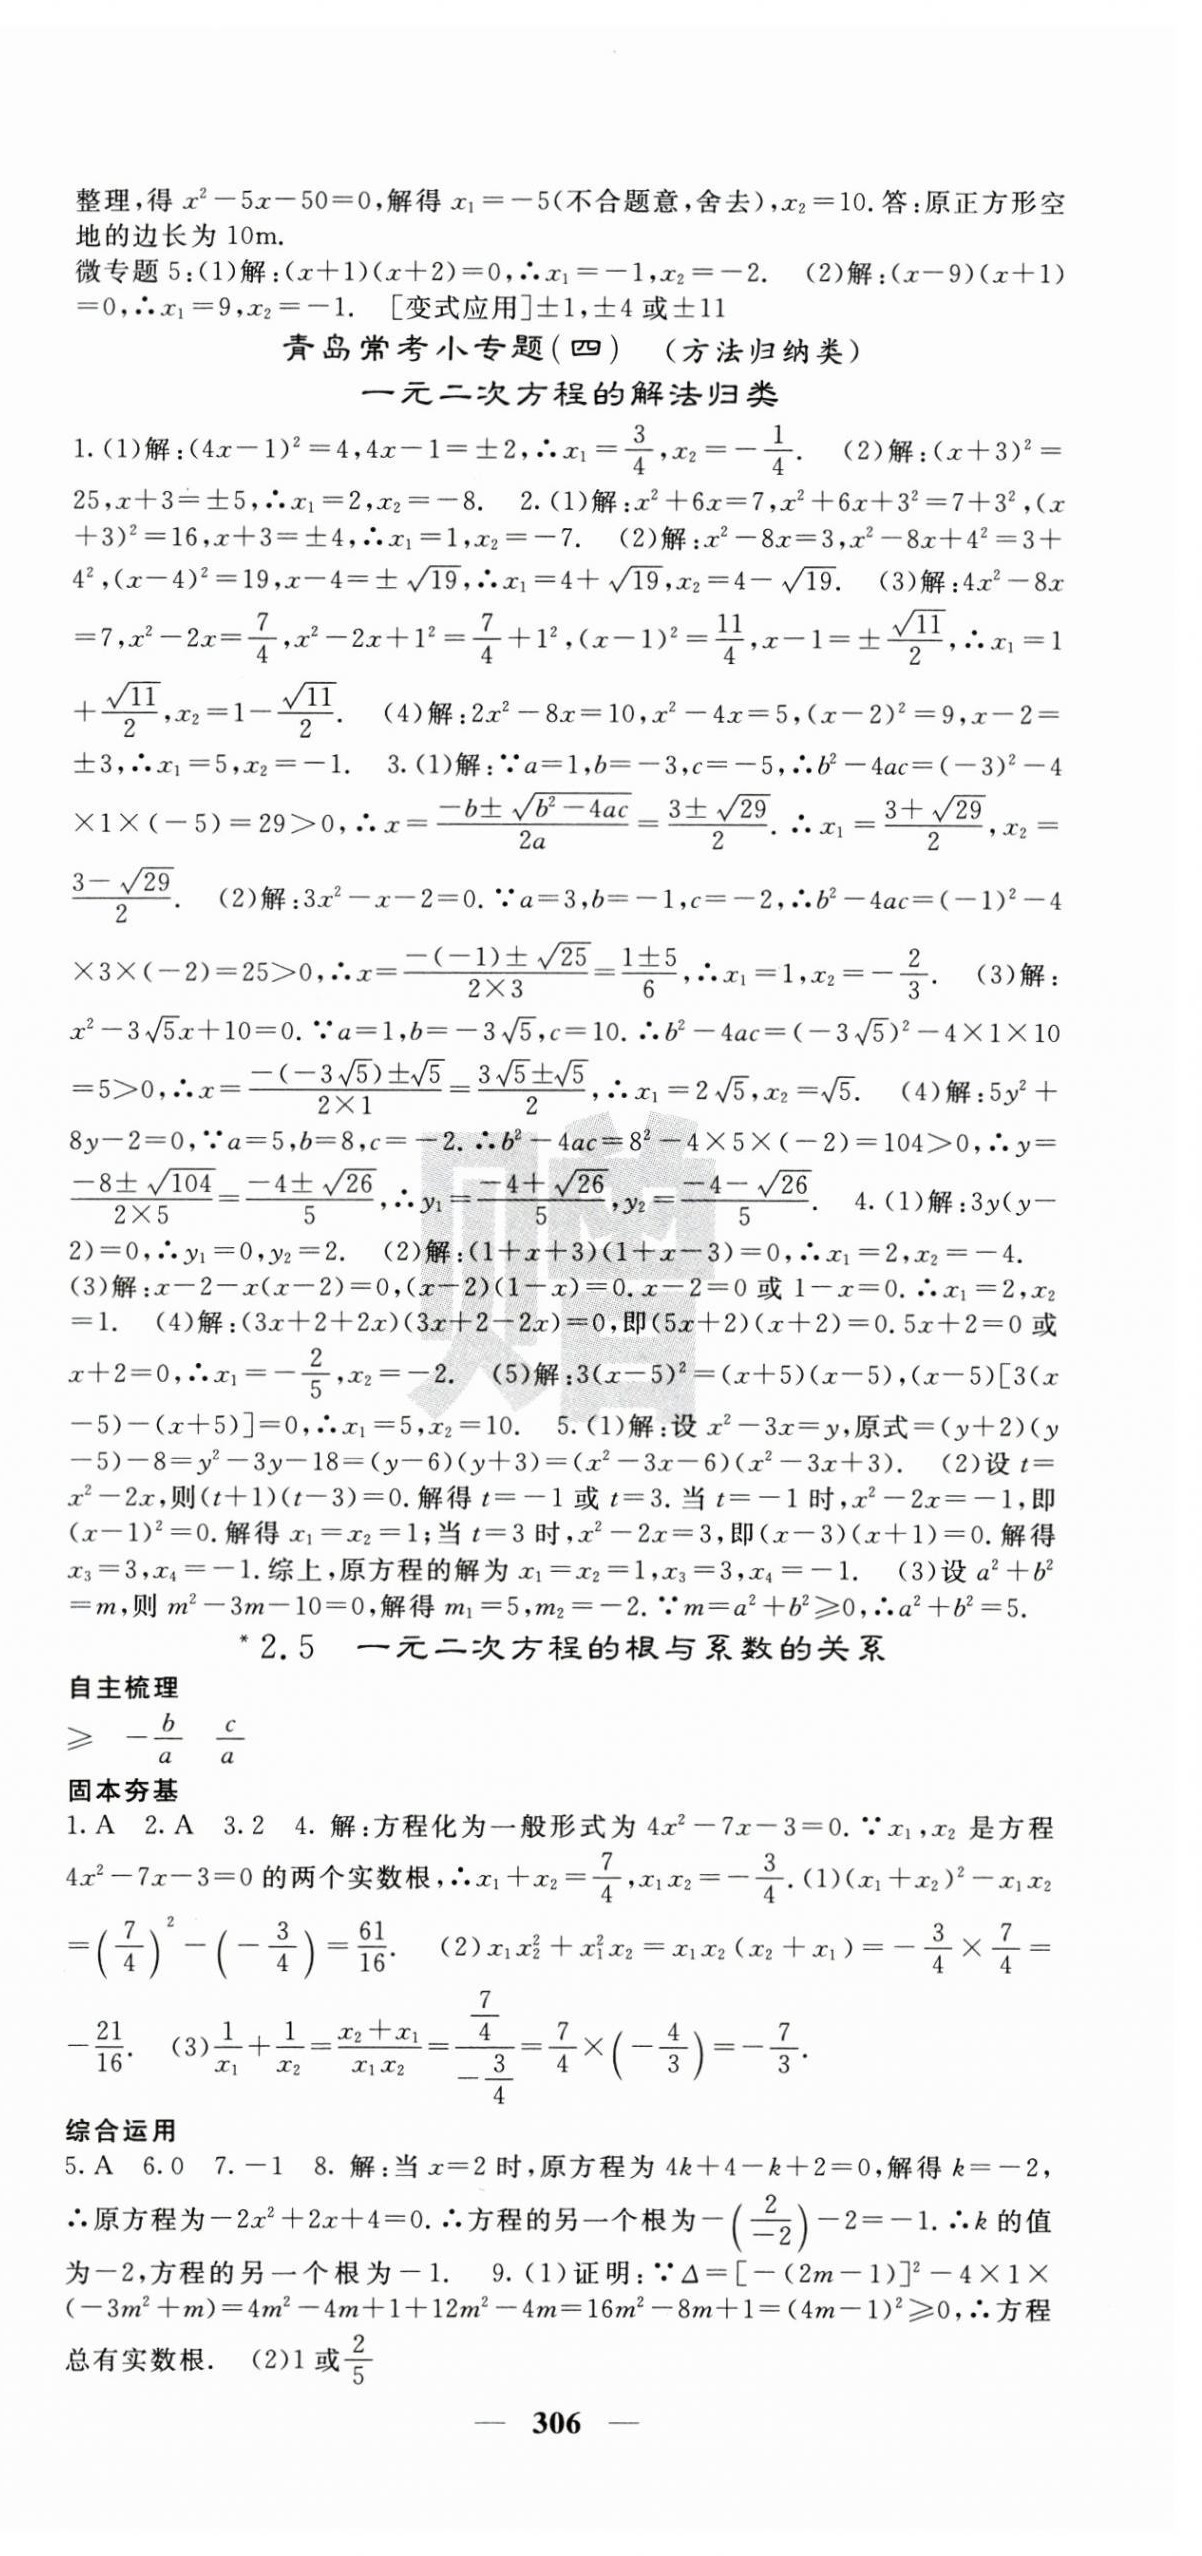 整理,得 x²-5x-50=0,解得 x₁=-5(不合题意,舍去),x₂=10.答:原正方形空
地的边长为 10m.
微专题 5:(1)解:(x+1)(x+2)=0,∴x₁=-1,x₂=-2. (2)解:(x-9)(x+1)
=0,∴x₁=9,x₂=-1. [变式应用]±1,±4 或±11
青岛常考小专题(四) (方法归纳类)
一元二次方程的解法归类
1.(1)解:(4x-1)²=4,4x-1=±2,∴x₁=3/4,x₂=-1/4. (2)解:(x+3)²=
25,x+3=±5,∴x₁=2,x₂=-8. 2.(1)解:x²+6x=7,x²+6x+3²=7+3²,(x
+3)²=16,x+3=±4,∴x₁=1,x₂=-7. (2)解:x²-8x=3,x²-8x+4²=3+
4²,(x-4)²=19,x-4=±√19,∴x₁=4+√19,x₂=4-√19. (3)解:4x²-8x
=7,x²-2x=7/4,x²-2x+1²=7/4+1²,(x-1)²=11/4,x-1=±√11/2,∴x₁=1
+√11/2,x₂=1-√11/2. (4)解:2x²-8x=10,x²-4x=5,(x-2)²=9,x-2=
±3,∴x₁=5,x₂=-1. 3.(1)解:∵a=1,b=-3,c=-5,∴b²-4ac=(-3)²-4
×1×(-5)=29>0,∴x=(-b±√(b²-4ac))/2a=(3±√29)/2.∴x₁=(3+√29)/2,x₂=
(3-√29)/2. (2)解:3x²-x-2=0.∵a=3,b=-1,c=-2,∴b²-4ac=(-1)²-4
×3×(-2)=25>0,∴x=(-(-1)±√25)/(2×3)=(1±5)/6,∴x₁=1,x₂=-2/3. (3)解:
x²-3√5x+10=0.∵a=1,b=-3√5,c=10.∴b²-4ac=(-3√5)²-4×1×10
=5>0,∴x=(-(-3√5)±√5)/(2×1)=(3√5±√5)/2,∴x₁=2√5,x₂=√5. (4)解:5y²+
8y-2=0,∵a=5,b=8,c=-2.∴b²-4ac=8²-4×5×(-2)=104>0,∴y=
(-8±√104)/(2×5)=(-4±√26)/5,∴y₁=(-4+√26)/5,y₂=(-4-√26)/5. 4.(1)解:3y(y-
2)=0,∴y₁=0,y₂=2. (2)解:(1+x+3)(1+x-3)=0,∴x₁=2,x₂=-4.
(3)解:x-2-x(x-2)=0,(x-2)(1-x)=0.x-2=0 或 1-x=0.∴x₁=2,x₂
=1. (4)解:(3x+2+2x)(3x+2-2x)=0,即(5x+2)(x+2)=0.5x+2=0 或
x+2=0,∴x₁=-2/5,x₂=-2. (5)解:3(x-5)²=(x+5)(x-5),(x-5)[3(x
-5)-(x+5)]=0,∴x₁=5,x₂=10. 5.(1)解:设 x²-3x=y,原式=(y+2)(y
-5)-8=y²-3y-18=(y-6)(y+3)=(x²-3x-6)(x²-3x+3). (2)设 t=
x²-2x,则(t+1)(t-3)=0.解得 t=-1 或 t=3.当 t=-1 时,x²-2x=-1,即
(x-1)²=0.解得 x₁=x₂=1;当 t=3 时,x²-2x=3,即(x-3)(x+1)=0.解得
x₃=3,x₄=-1.综上,原方程的解为 x₁=x₂=1,x₃=3,x₄=-1. (3)设 a²+b²
=m,则 m²-3m-10=0,解得 m₁=5,m₂=-2.∵m=a²+b²≥0,∴a²+b²=5.
*2.5 一元二次方程的根与系数的关系
自主梳理
≥ -b/a c/a
固本夯基
1.A 2.A 3.2 4. 解:方程化为一般形式为 4x²-7x-3=0.∵x₁,x₂ 是方程
4x²-7x-3=0 的两个实数根,∴x₁+x₂=7/4,x₁x₂=-3/4.(1)(x₁+x₂)²-x₁x₂
=(7/4)²-(-3/4)=61/16. (2)x₁x₂²+x₁²x₂=x₁x₂(x₂+x₁)=-3/4×7/4=
-21/16. (3)1/x₁+1/x₂=(x₂+x₁)/(x₁x₂)=(7/4)/(-3/4)=7/4×(-4/3)=-7/3.
综合运用
5.A 6.0 7.-1 8. 解:当 x=2 时,原方程为 4k+4-k+2=0,解得 k=-2,
∴原方程为-2x²+2x+4=0.∴方程的另一个根为-(2/-2)-2=-1.∴k 的值
为-2,方程的另一个根为-1. 9.(1)证明:∵Δ=[-(2m-1)]²-4×1×
(-3m²+m)=4m²-4m+1+12m²-4m=16m²-8m+1=(4m-1)²≥0,∴方程
总有实数根. (2)1 或 2/5
— 306 —
赠